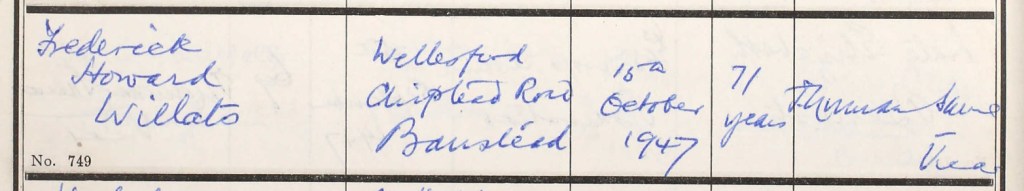 Frederick
Howard
Willats
No. 749
Wellesford
Chipstead Road
Banstead
15th
October
1947
71
years
Vicar